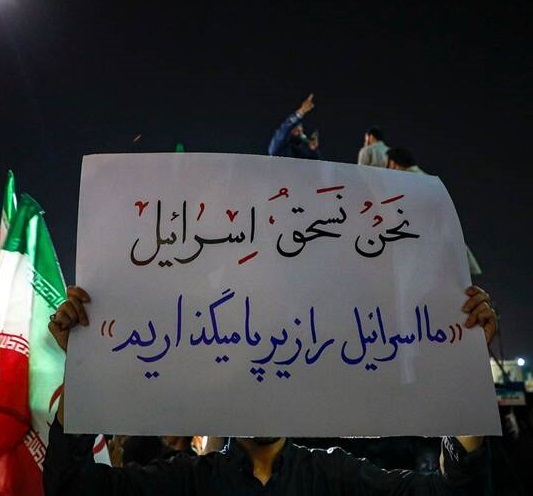 نَحْنُ نَسْحَقُ إِسْرَائِيل
«ما اسرائیل را زیر پا میگذاریم»